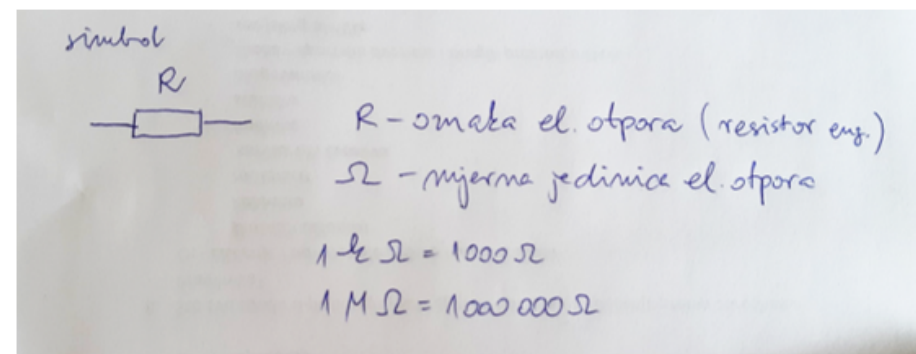 simbol
R
R - oznaka el. otpora (resistor eng.)
Ω - mjerna jedinica el. otpora
1 k Ω = 1000 Ω
1 M Ω = 1000 000 Ω